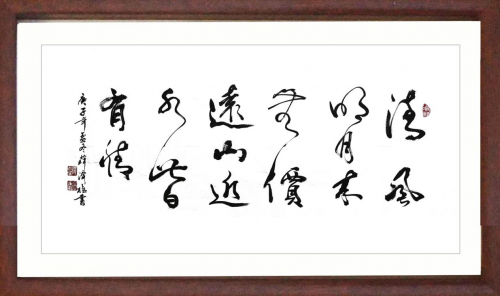 清風
明月本
無價
遠山近
水皆
有情
庚子年孟冬書